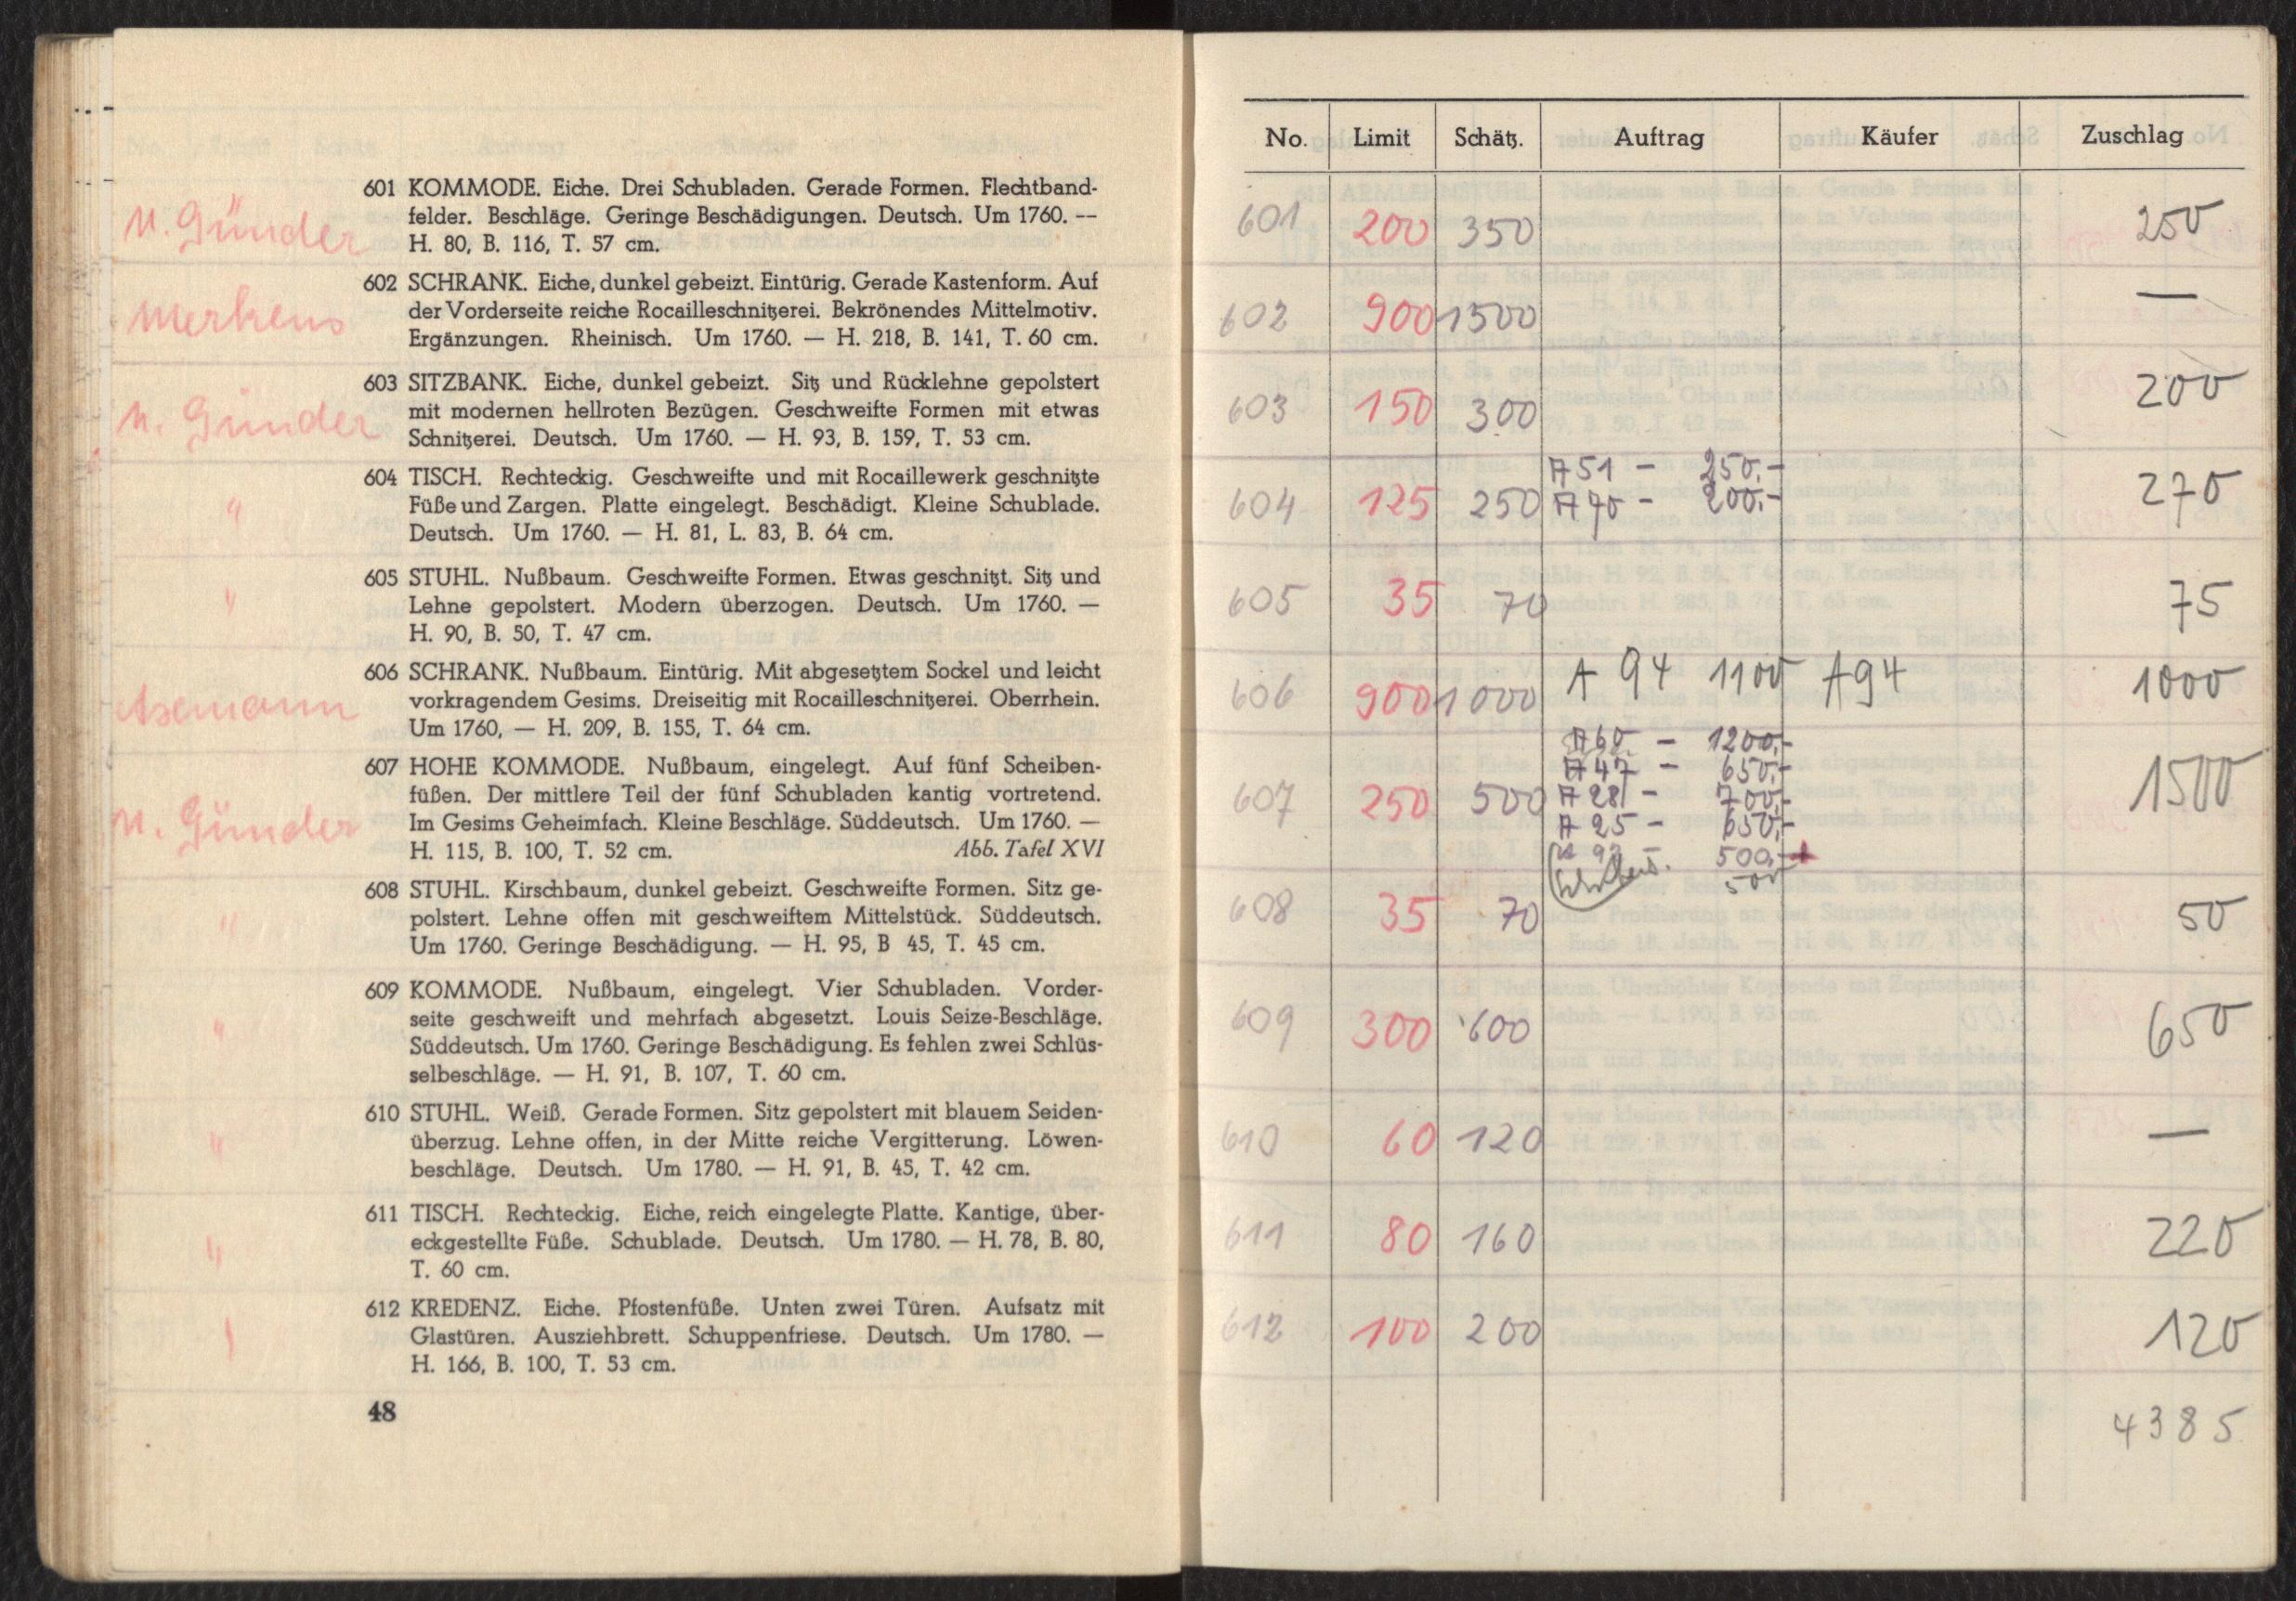 601 KOMMODE. Eiche. Drei Schubladen. Gerade Formen. Flechtband-
felder. Beschläge. Geringe Beschädigungen. Deutsch. Um 1760. --
H. 80, B. 116, T. 57 cm.
Günder
602 SCHRANK. Eiche, dunkel gebeizt. Eintürig. Gerade Kastenform. Auf
der Vorderseite reiche Rocailleschnitzerei. Bekrönendes Mittelmotiv.
Ergänzungen. Rheinisch. Um 1760. — H. 218, B. 141, T. 60 cm.
Merkens
603 SITZBANK. Eiche, dunkel gebeizt. Sitz und Rücklehne gepolstert
mit modernen hellroten Bezügen. Geschweifte Formen mit etwas
Schnitzerei. Deutsch. Um 1760. — H. 93, B. 159, T. 53 cm.
Günder
604 TISCH. Rechteckig. Geschweifte und mit Rocaillewerk geschnitzte
Füße und Zargen. Platte eingelegt. Beschädigt. Kleine Schublade.
Deutsch. Um 1760. — H. 81, L. 83, B. 64 cm.
"
605 STUHL. Nußbaum. Geschweifte Formen. Etwas geschnitzt. Sitz und
Lehne gepolstert. Modern überzogen. Deutsch. Um 1760. —
H. 90, B. 50, T. 47 cm.
"
606 SCHRANK. Nußbaum. Eintürig. Mit abgesetztem Sockel und leicht
vorkragendem Gesims. Dreiseitig mit Rocailleschnitzerei. Oberrhein.
Um 1760, — H. 209, B. 155, T. 64 cm.
607 HOHE KOMMODE. Nußbaum, eingelegt. Auf fünf Scheiben-
füßen. Der mittlere Teil der fünf Schubladen kantig vortretend.
Im Gesims Geheimfach. Kleine Beschläge. Süddeutsch. Um 1760. —
H. 115, B. 100, T. 52 cm. Abb. Tafel XVI
Günder
608 STUHL. Kirschbaum, dunkel gebeizt. Geschweifte Formen. Sitz ge-
polstert. Lehne offen mit geschweiftem Mittelstück. Süddeutsch.
Um 1760. Geringe Beschädigung. — H. 95, B 45, T. 45 cm.
"
609 KOMMODE. Nußbaum, eingelegt. Vier Schubladen. Vorder-
seite geschweift und mehrfach abgesetzt. Louis Seize-Beschläge.
Süddeutsch. Um 1760. Geringe Beschädigung. Es fehlen zwei Schlüs-
selbeschläge. — H. 91, B. 107, T. 60 cm.
"
610 STUHL. Weiß. Gerade Formen. Sitz gepolstert mit blauem Seiden-
überzug. Lehne offen, in der Mitte reiche Vergitterung. Löwen-
beschläge. Deutsch. Um 1780. — H. 91, B. 45, T. 42 cm.
"
611 TISCH. Rechteckig. Eiche, reich eingelegte Platte. Kantige, über-
eckgestellte Füße. Schublade. Deutsch. Um 1780. — H. 78, B. 80,
T. 60 cm.
"
612 KREDENZ. Eiche. Pfostenfüße. Unten zwei Türen. Aufsatz mit
Glastüren. Ausziehbrett. Schuppenfriese. Deutsch. Um 1780. —
H. 166, B. 100, T. 53 cm.
48
No. Limit Schätz. Auftrag Käufer Zuschlag
601 200 350 250
602 900 1500 —
603 150 300 200
604 125 250 A 51 – 250.- 270
A 70 – 200.-
605 35 70 75
606 900 1000 A 94 1100 A94 1000
607 250 500 1500
A 60 – 1200.-
A 47 – 650.-
A 28 – 700.-
A 25 – 650.-
500.- +
500
608 35 70 50
609 300 600 650
610 60 120 —
611 80 160 220
612 100 200 120
4385